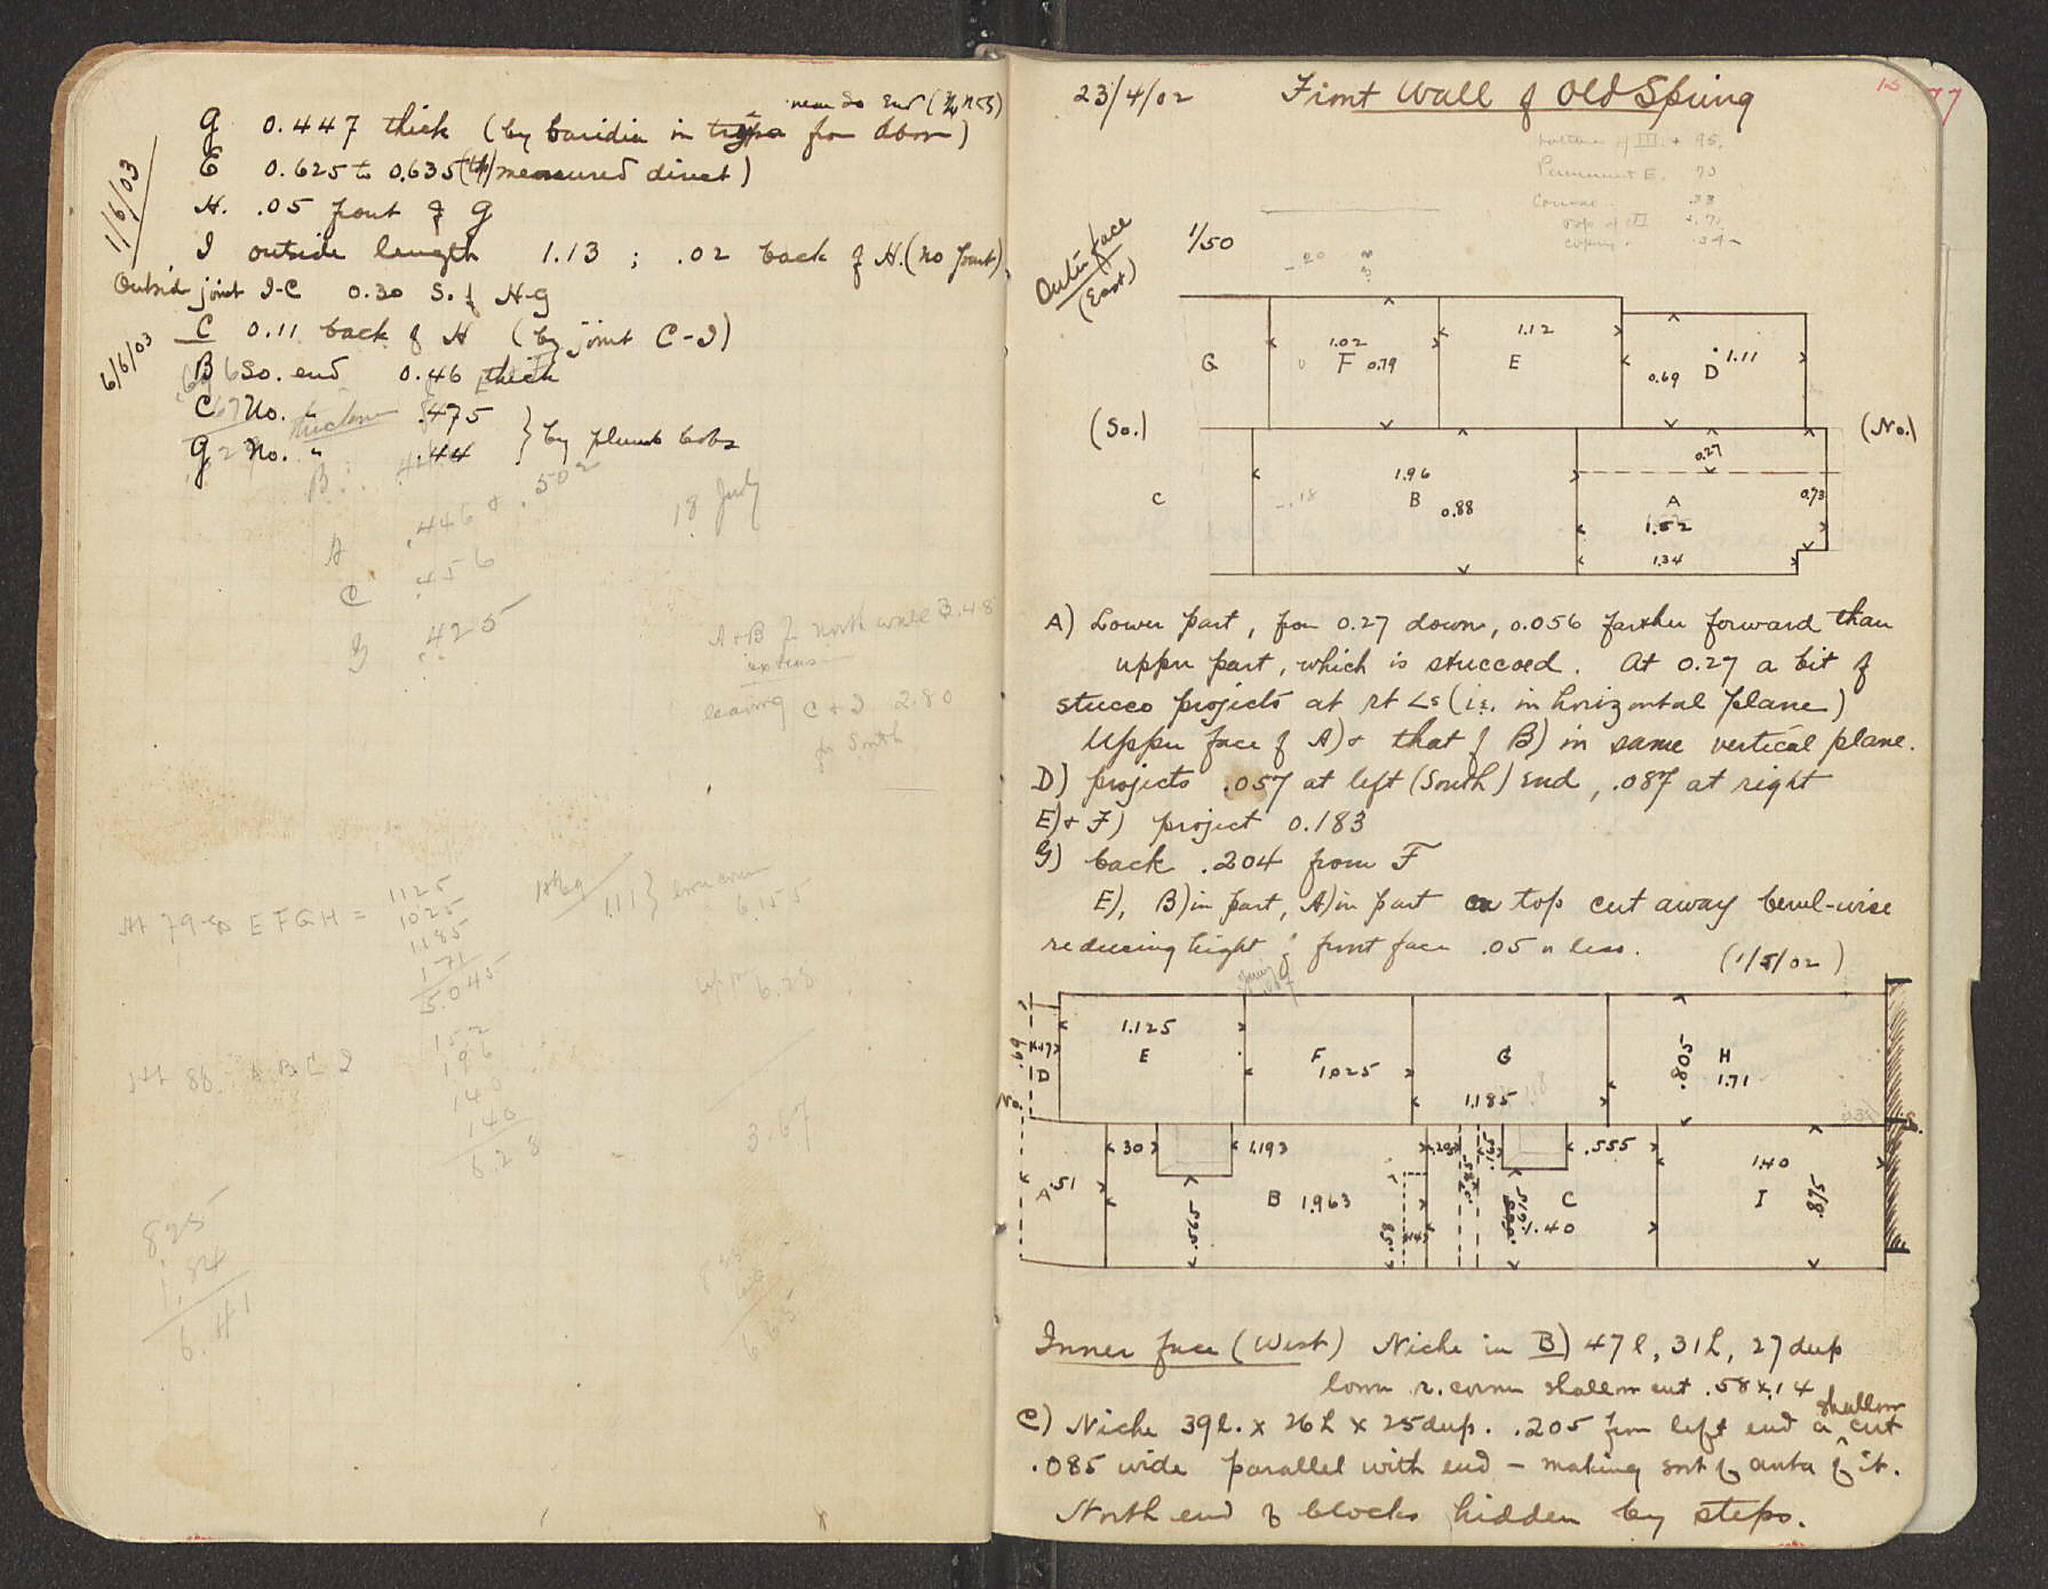 near So End
G 0.447 thick (by baridia in from above)
E 0.625 to 0.635 (top) measured direct)
1/6/03
H. .05 front of G
I outside length 1.13 ; .02 back of H. (no joint)
Outside joint I-C 0.30 S. of H-G
C 0.11 back of H (by joint C-I)
6/6/03
B So. end 0.46 thick
C No. " .475
G No. " .44 } by plumb bobs
thickness
B
A .446 + .502
C .456
G .425
18 July
A+B for north wall 3.48
extens
leaving C+I 2.80
for South
At 79 up EFGH =
1125
1025
1185
171
5.045
1.11 }
6.155
6.28
At 88 - A B C I
152
196
140
140
628
3.67
895
1.84
6.41
665
23/4/02 Front Wall of Old Spring
15 77
95.
Permanent E. 73
Course .33
top of II
coping
Outer face
(East)
1/50
G
1.02
F 0.79
1.12
E
1.11
0.69 D
(So.)
(No.)
C
1.96
B 0.88
-.18
0.27
A
0.73
1.52
1.34
A) Lower part, from 0.27 down, 0.056 farther forward than
upper part, which is stuccoed. At 0.27 a bit of
stucco projects at rt ∠s (i.e. in horizontal plane)
Upper face of A) + that of B) in same vertical plane.
D) projects .057 at left (South) End, .087 at right
E) + F) project 0.183
G) back .204 from F
E), B) in part, A) in part on top cut away bevel-wise
reducing hight of front face .05 or less.
(1/5/02)
.69
D
1.125
E
F
1.025
G
1.185
.805
H
1.71
No.
S.
A .51
.30
1.193
B 1.963
.565
.58
.14
.205
.085
.195
.555
C
.615
1.40
1.40
I
.875
Inner face (West) Niche in B) 47 l, 31 h, 27 deep
lower r. corner shallow cut .58 x .14
C) Niche 39 l. x 26 h x 25 deep. .205 from left end a shallow cut
.085 wide parallel with end – making sort of anta of it.
North end of blocks hidden by steps.